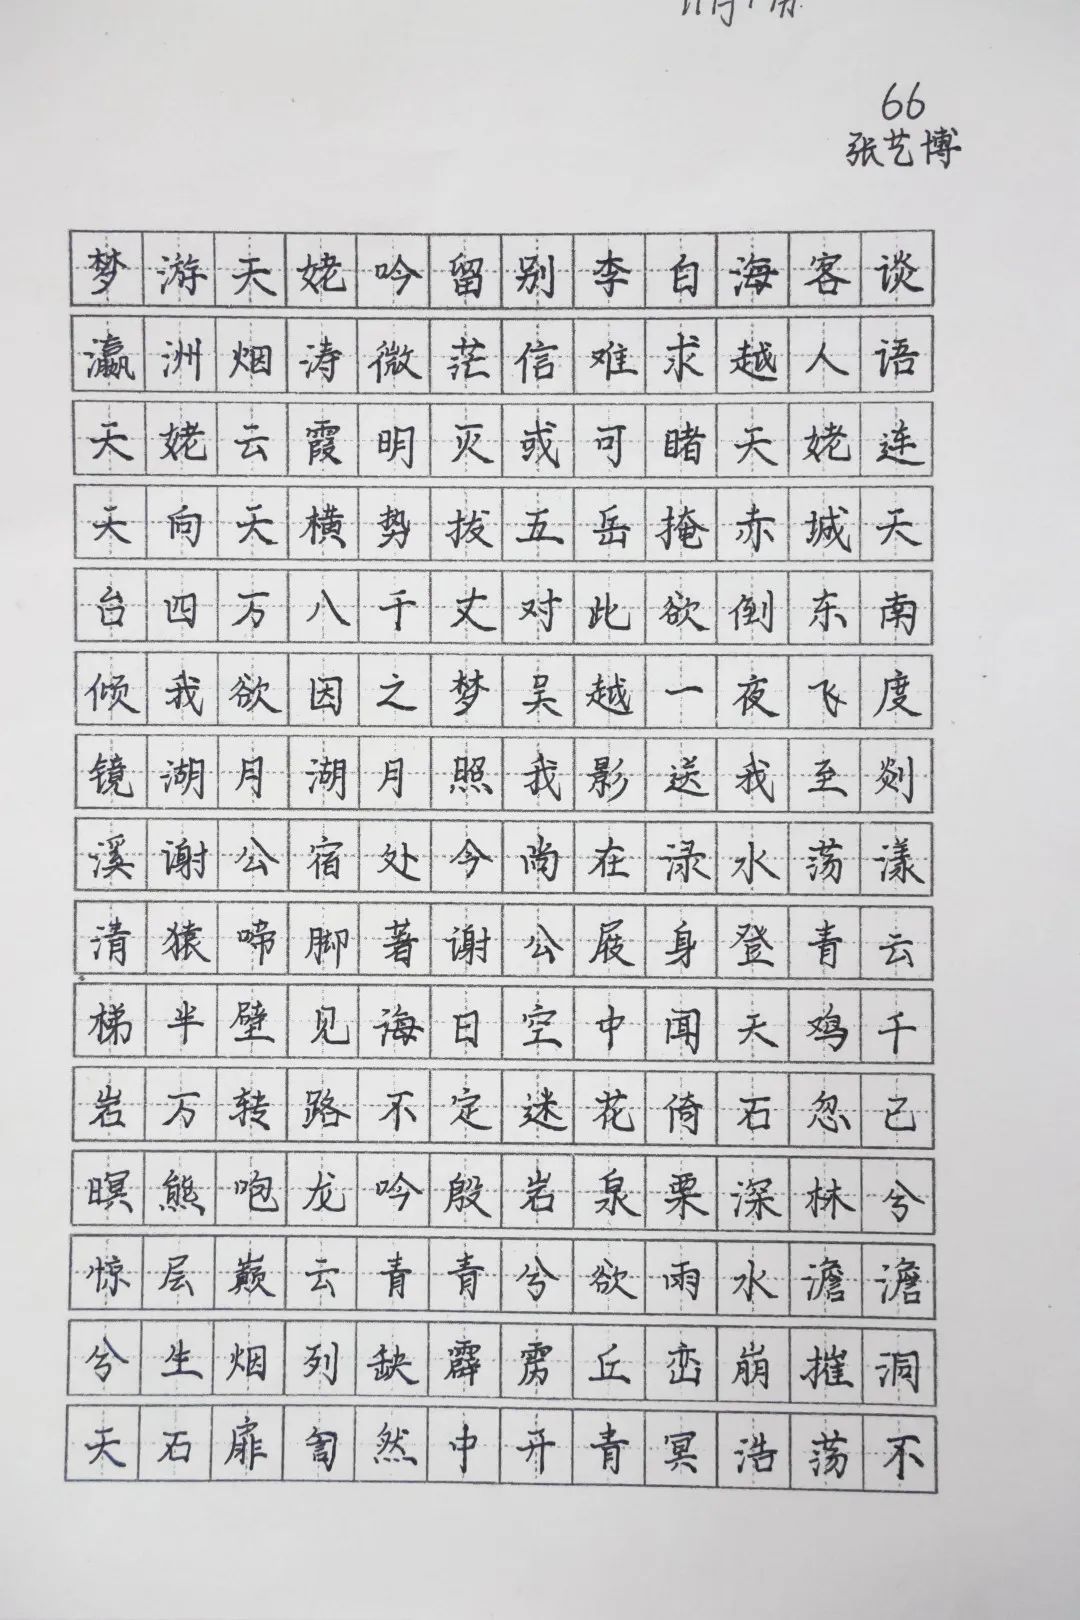 66
张艺博
梦游天姥吟留别李白海客谈
瀛洲烟涛微茫信难求越人语
天姥云霞明灭或可睹天姥连
天向天横势拔五岳掩赤城天
台四万八千丈对此欲倒东南
倾我欲因之梦吴越一夜飞度
镜湖月湖月照我影送我至剡
溪谢公宿处今尚在渌水荡漾
清猿啼脚著谢公屐身登青云
梯半壁见海日空中闻天鸡千
岩万转路不定迷花倚石忽已
暝熊咆龙吟殷岩泉栗深林兮
惊层巅云青青兮欲雨水澹澹
兮生烟列缺霹雳丘峦崩摧洞
天石扉訇然中开青冥浩荡不